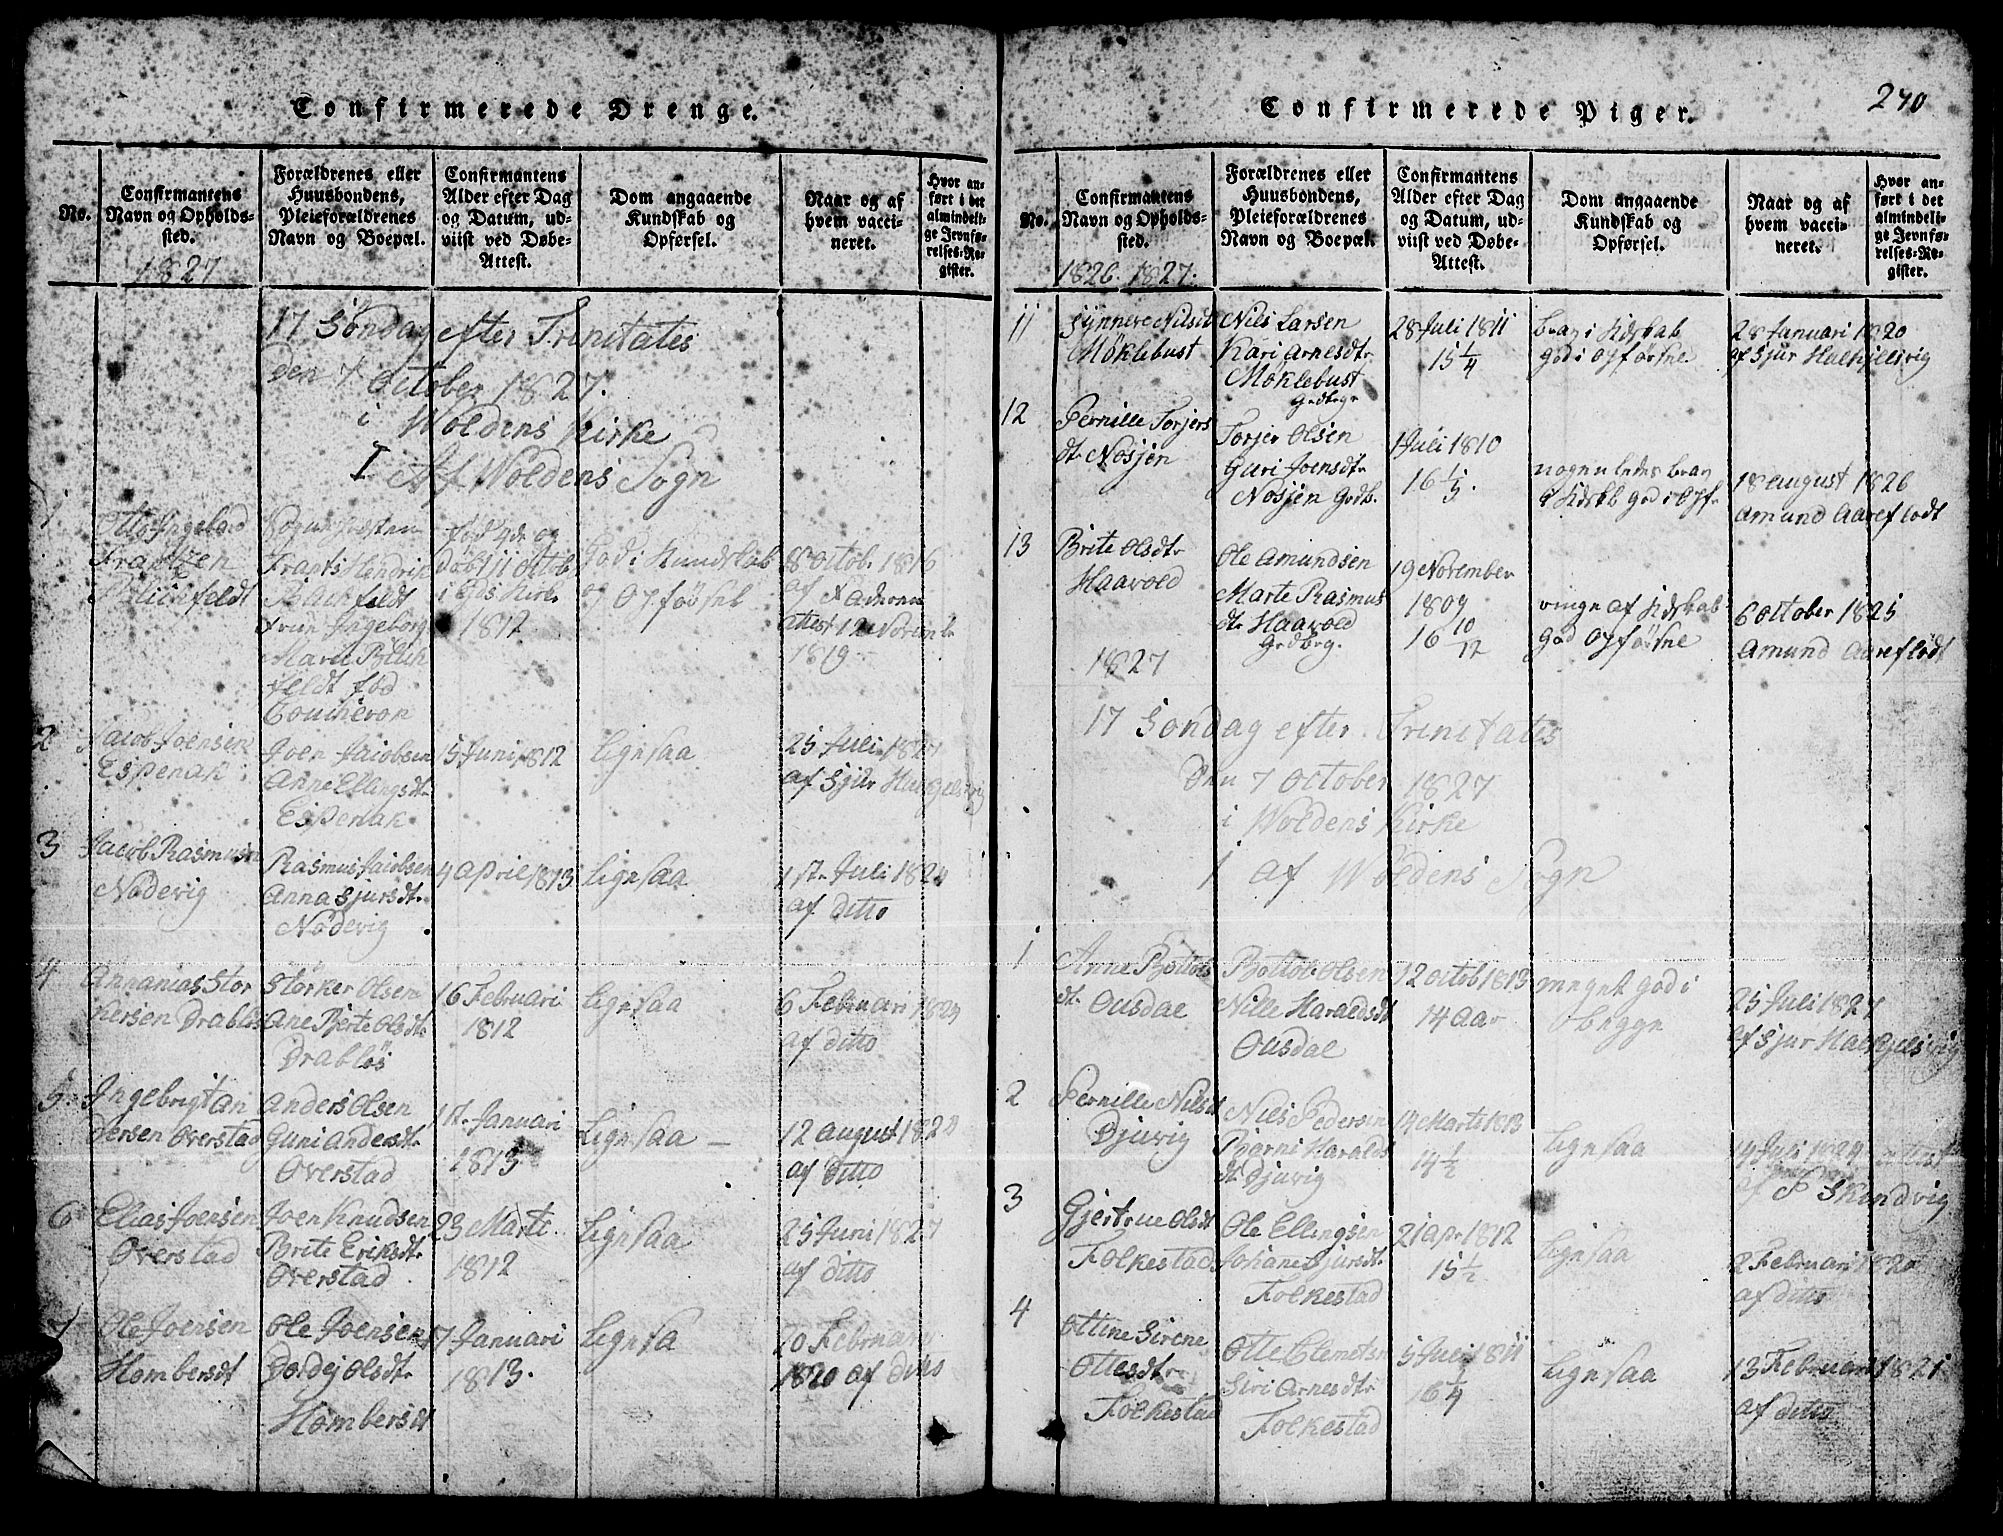 Confirmerede Drenge.
No.
Confirmantens
Navn og Opholds-
sted.
1827
Forældrenes eller
Huusbondens,
Pleieforældrenes
Navn og Boepæl.
Confirmantens
Alder efter Dag
og Datum, ud-
viist ved Døbe-
Attest.
Dom angaaende
Kundskab og
Opførsel.
Naar og af
hvem vacci-
neret.
Hvor an-
ført i det
almindeli-
ge Jevnfø-
relses-Re-
gister.
17 Søndag efter Trinitates
Den 7 October 1827.
i Woldens Kirke
I Af Woldens Sogn
1
Otto Ingebard
Frantzen
Frants Hendrik
Frue Ingeborg
Marie
feldt fød
Coucheron
Fød 4de og
Døbt 11 Octob
i Eids Kirke
1812
God i Kundskab
og Opførsel
8 Octob. 1816
af Faderen
attest 12 Novembr
1819
2
Jacob Joensen
Espenak
Joen Jacobsen
Anne Ellingsdtr
Espenak
15 Juni 1812
ligesaa
25 Juli 1827
af Sjur
3
Jacob Rasmusen
Nødevig
Rasmus Jacobsen
Anna Sjursdtr.
Nødevig
4 April 1813
ligesaa
1ste Juli 1824
af ditto
4
Annanias Stor
kersen Drabløs
Størker Olsen
Ane Berte Olsdtr
Drabløs
16 Februari
1812
ligesaa
6 Februari
af ditto
5
Ingebrigt An
dersen Øverstad
Anders Olsen
Guni Andersdtr
Øverstad
17 Januari
1813
ligesaa
12 August
af ditto
6
Elias Joensen
Øverstad
Joen Knudsen
Brite Eriksdtr
Øverstad
23 Marti
1812
ligesaa
25 Juni 1827
af ditto
7
Ole Joensen
Hombersdt
Ole Joensen
Dordej Olsdtr
Hombersdt
17 Januari
1813.
ligesa
10 Februari
1820 af ditto
Confirmerede Piger.
270
No.
Confirmantens
Navn og Opholds-
sted.
1826. 1827.
Forældrenes eller
Huusbondens,
Pleieforældrenes
Navn og Boepæl.
Confirmantens
Alder efter Dag
og Datum, ud-
viist ved Døbe-
Attest.
Dom angaaende
Kundskab og
Opførsel.
Naar og af
hvem vacci-
neret.
Hvor an-
ført i det
almindeli-
ge Jevnfø-
relses-Re-
gister.
11
Synneve Nilsdt
Møklebust
Nils Larsen
Kari Arnesdtr
Møklebust
28 Juli 1811
15 1/4
brav i Kdskab
god i Opførsne
28 Januari 1820
af Sjur
12
Pernille Torjers
dtr Nosjen
Torjer Olsen
Guri Joensdtr
Nosjen Godb.
1 Juli 1810
16 1/5.
nogenledes brav
18 August 1826
Amund Aareflodt
13
Brite Olsdtr
Haavold
Ole Amundsen
Marte Rasmus
dtr Haavold
Godbrg.
19 November
1809
16 10/12
ringe af Kdskab
god Opførsne
6 October 1825
Amund Aareflodt
1827
17 Søndag efter Trinitates
Den 7 October 1827
i Woldens Kirke
I af Woldens Sogn
1
Anne Bottols
dtr Ousdal
Bottol Olsen
Nille Haraldsdt
Ousdal
12 Octob 1813
14 Aar
meget god i
begge
25 Juli 1827
af Sjur
2
Pernille Nilsdt
Djuvig
Nils Pedersen
Bjerni Haralds
dtr Djuvig
14 Marti 1813
14 1/2
ligesaa
14 Juli 1824
af P Skindvig
3
Gjertrue Olsdt
Folkestad
Ole Ellingsen
Johane Sjursdtr.
Folkestad
21 Apr 1812
15 1/2
ligesaa
2 Februari
af ditto
4
Ottine Sirene
Ottesdtr
Folkestad
Otte Clemetsn
Siri Arnesdtr
Folkestad
5 Juli 1811
16 1/4
ligesaa
13 Februari 1821
af ditto